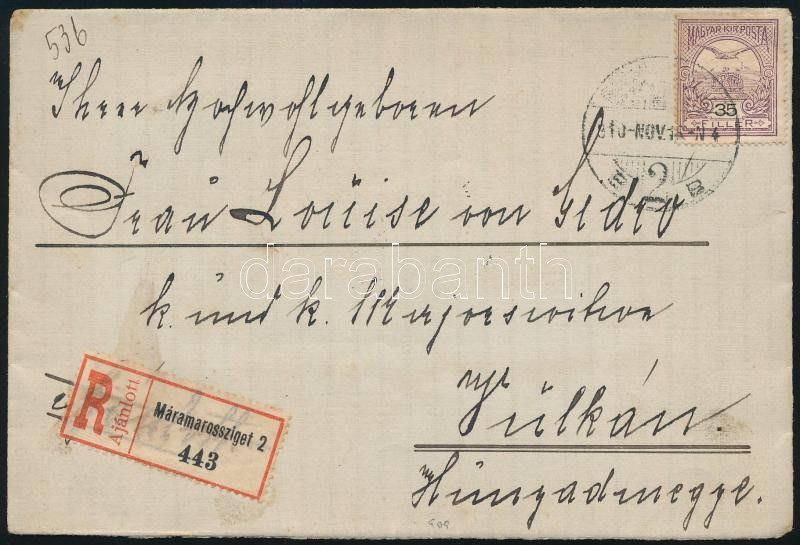 536
MAGYAR KIR. POSTA
35
FILLER
910-NOV.
2
Ihrer Hochwohlgeboren
Frau Louise von
k. und k. Majorswitwe
Vulkán.
Hunyadmegye.
R
Ajánlott
Máramarossziget 2
443
darabanth
909